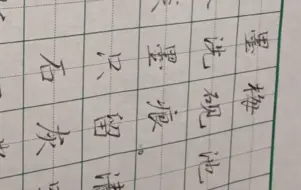 墨梅
洗砚池
墨痕
只留清
石灰